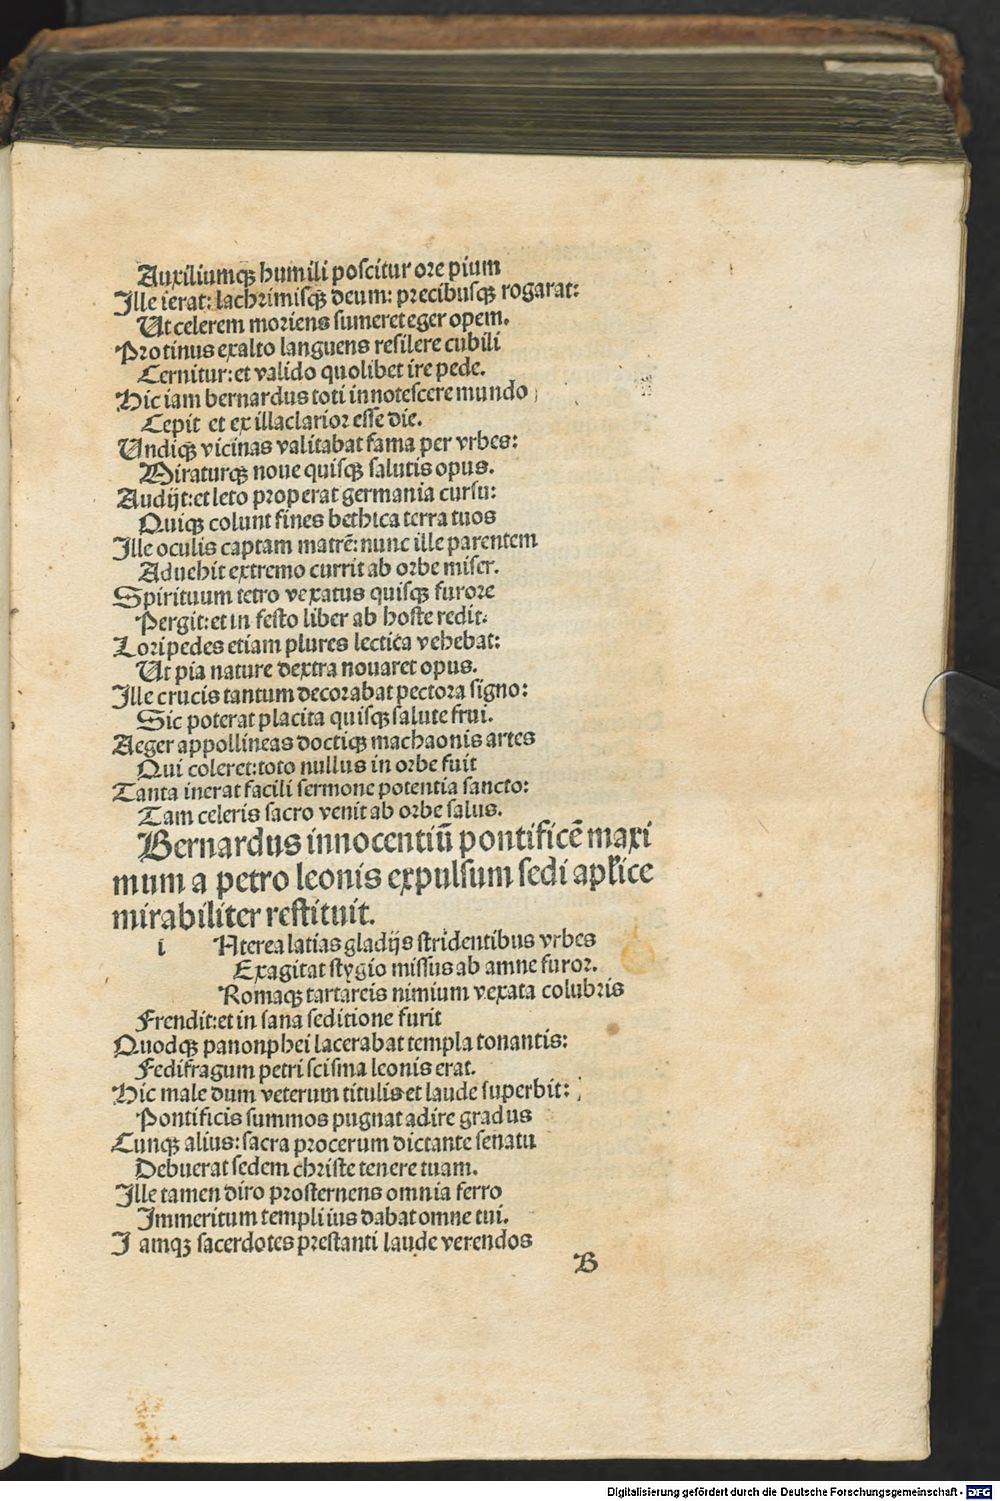 Auxiliumqꝫ humili poscitur ore pium
Ille ierat: lachrimisqꝫ deum: precibusqꝫ rogarat:
Ut celerem moriens sumeret eger opem.
Protinus exalto languens resilere cubili
Cernitur: et valido quolibet ire pede.
Hic iam bernardus toti innotescere mundo
Cepit et ex illa clarior esse die.
Undiqꝫ vicinas valitabat fama per vrbes:
Miraturqꝫ noue quisqꝫ salutis opus.
Audijt: et leto properat germania cursu:
Quiqꝫ colunt fines bethica terra tuos
Ille oculis captam matrē: nunc ille parentem
Aduehit extremo currit ab orbe miser.
Spirituum tetro vexatus quisqꝫ furore
Pergit: et in festo liber ab hoste redit:
Loripedes etiam plures lectica vehebat:
Ut pia nature dextra nouaret opus.
Ille crucis tantum decorabat pectora signo:
Sic poterat placita quisqꝫ salute frui.
Aeger appollineas doctiqꝫ machaonis artes
Qui coleret: toto nullus in orbe fuit
Tanta inerat facili sermone potentia sancto:
Tam celeris sacro venit ab orbe salus.
Bernardus innocentiū pontificē maxi
mum a petro leonis expulsum sedi apl'ice
mirabiliter restituit.
i Nterea latias gladijs stridentibus vrbes
Exagitat stygio missus ab amne furor.
Romaqꝫ tartareis nimium vexata colubris
Frendit: et in sana seditione furit
Quodqꝫ panonphei lacerabat templa tonantis:
Fedifragum petri scisma leonis erat.
Hic male dum veterum titulis et laude superbit:
Pontificis summos pugnat adire gradus
Cunqꝫ alius: sacra procerum dictante senatu
Debuerat sedem christe tenere tuam.
Ille tamen diro prosternens omnia ferro
Immeritum templi ius dabat omne tui.
I amqꝫ sacerdotes prestanti laude verendos
B
Digitalisierung gefördert durch die Deutsche Forschungsgemeinschaft - DFG